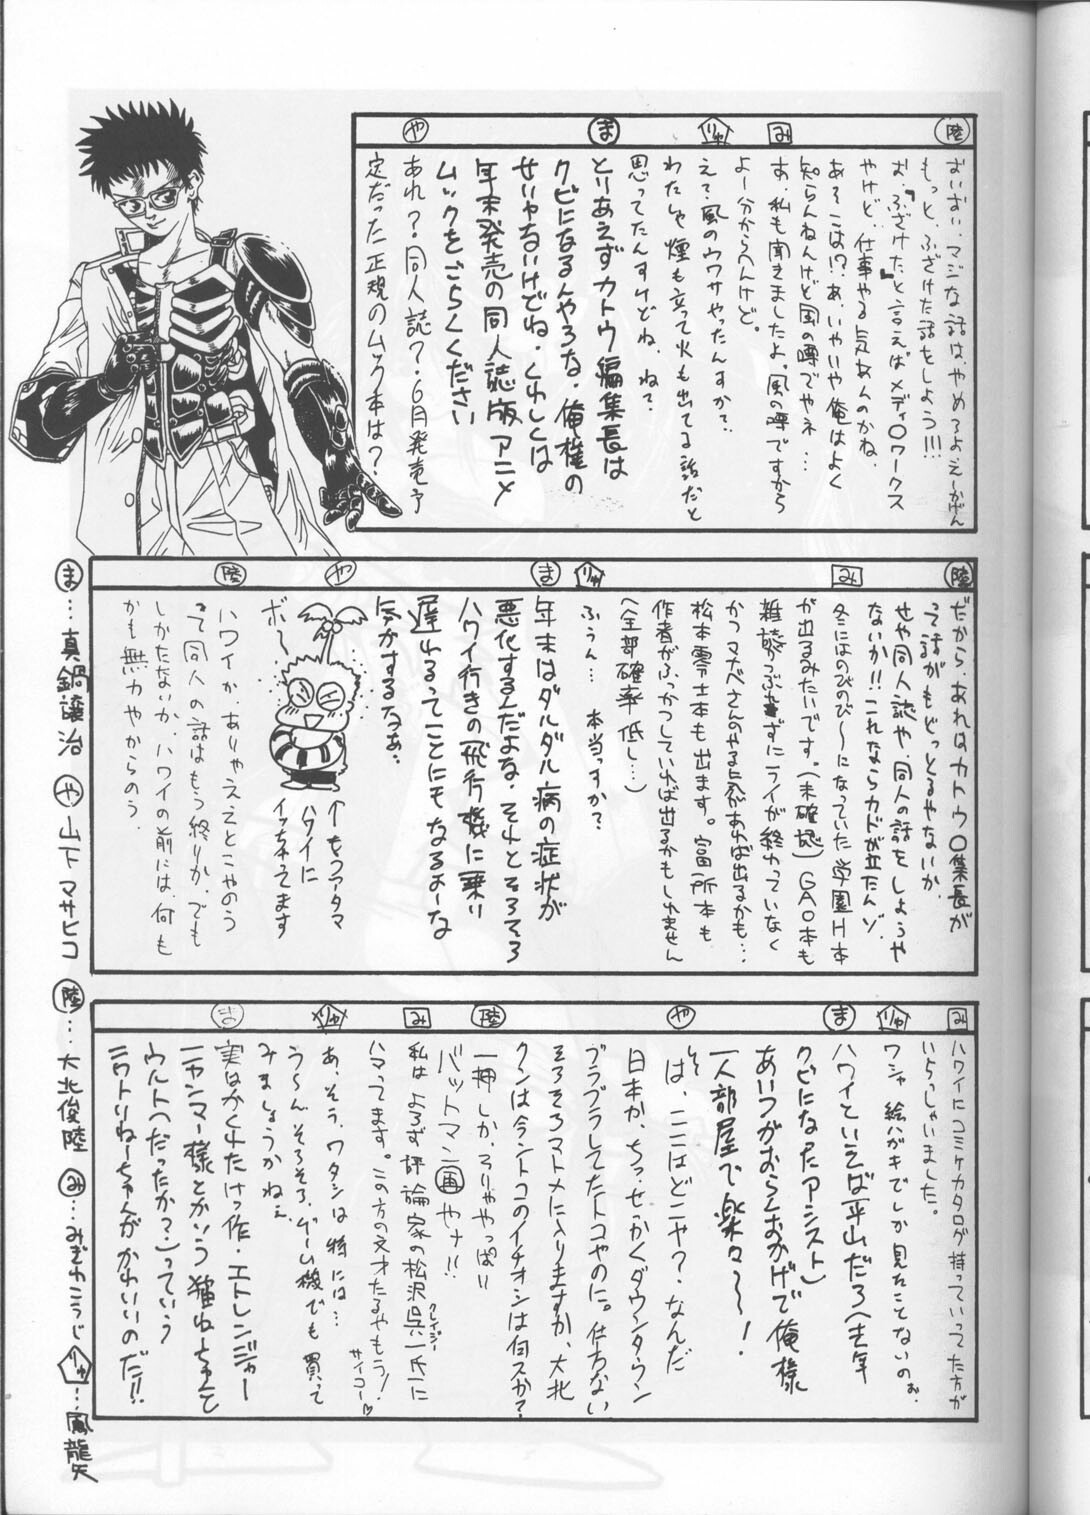 陸
おいおい、マジな話は、やめろよえーかげん
もっと、ふざけた話をしよう!!!
お、『ふざけた』と言えばメディ〇ワークス
やけど、仕事やる気あんのかね、
あそこは!?あ、いやいや俺はよく
知らんねんけど風の噂でやネ…
み
あ、私も聞きましたよ。風の噂ですから
よー分からんけど。
りゅ
え?風のウワサやったんすか?
わたしゃ煙も立って火も出てる話だと
思ってたんすけどね、ね?
ま
とりあえずカトウ編集長は
クビになるんやろな、俺様の
せいやないけどね、くわしくは
年末発売の同人誌版アニメ
ムックをごらんください
や
あれ?同人誌?6月発売予
定だった正規のムック本は?
陸
だから、あれはカトウ〇集長が
って話がもどっとるやないか、
せや同人誌や、同人の話をしようや
ないか!!これならカドが立たんゾ、
み
冬にはのびのび〜になっていた学園H本
が出るみたいです。(未確認)GAO本も
雑誌つぶれずにライが終わっていなく
かつマナベさんのやる気があれば出るかも…
松本零士本も出ます。富所本も
作者がふっかつしていれば出るかもしれません
(全部確率低し…)
りゅ
ふぅん…本当っすか?
ま
年末はダルダル病の症状が
悪化するんだよな、それとそろそろ
ハワイ行きの飛行機に乗り
遅れるってことにもなるよーな
気がするなぁ、
や
ボ〜
↑もうアタマ
ハワイに
イッちゃってます
陸
ハワイか ありゃええとこやのう
って同人の話はもう終りか、でも
しかたないか、ハワイの前には、何も
かも無力やからのう、
み
ハワイにコミケカタログ持っていってた方が
いらっしゃいました。
りゅ
ワシャ絵ハガキでしか見たことないのぉ
ま
ハワイといえば平山だろ(去年
クビになったアシスト)
あいつがおらんおかげで俺様
一人部屋で楽々〜〜!
や
そは、ここはどこや?、なんだ
日本か、ちっ、せっかくダウンタウン
ブラブラしてたトコやのに。仕方ない
そろそろマトメに入りますか、大北
クンは今ントコのイチオシは何スか?
陸
一押しか、そりゃやっぱ!!
バットマン画やナ!!
み
私は よろず評論家の松沢呉一氏に
クレイジー
ハマってます。この方の文才たるやもう!
サイコー♡
りゅ
あ、そう、ワタシは特には…
う〜ん、そろそろ、ゲーム機でも買って
みましょうかねぇ、
ま
実はかくれたけっ作・エトレンジャー
ニャンマー様とかいう猫ねえちゃんと
ウルト(だったか?)っていう
ニワトリねーちゃんがかわいいのだ!!
ま…真鍋譲治 や山下マサヒコ 陸…大北俊陸 み…みぎわこうじ りゅ…風龍矢